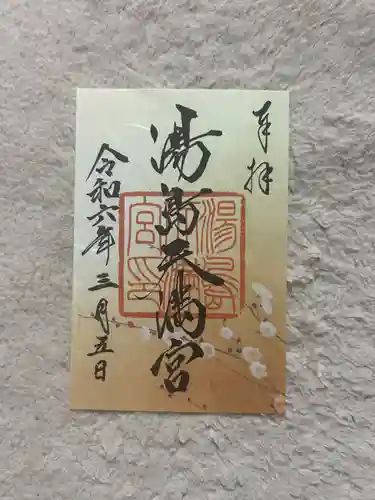 奉拝
湯島天満宮
湯島
天満
宮印
令和六年三月五日